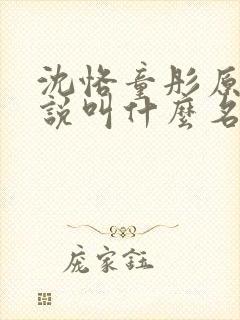 沈恪童彤原
說叫什麼名
龐家鈺